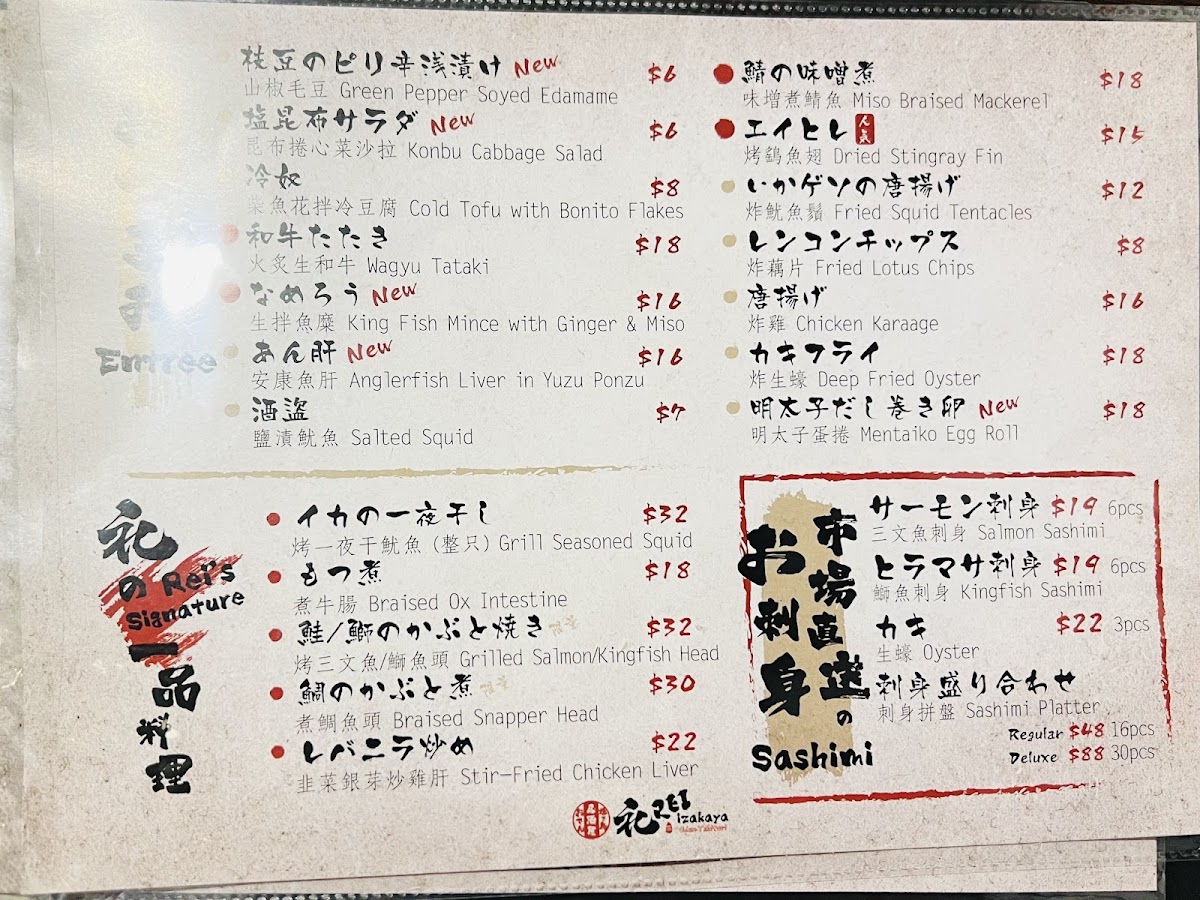 Entrée
枝豆のピリ辛浅漬け New $6
山椒毛豆 Green Pepper Soyed Edamame
塩昆布サラダ New $6
昆布捲心菜沙拉 Konbu Cabbage Salad
冷奴 $8
柴魚花拌冷豆腐 Cold Tofu with Bonito Flakes
和牛たたき $18
火炙生和牛 Wagyu Tataki
なめろう New $16
生拌魚糜 King Fish Mince with Ginger & Miso
あん肝 New $16
安康魚肝 Anglerfish Liver in Yuzu Ponzu
酒盗 $7
鹽漬魷魚 Salted Squid
鯖の味噌煮 $18
味增煮鯖魚 Miso Braised Mackerel
エイヒレ 人気 $15
烤鷂魚翅 Dried Stingray Fin
いかゲソの唐揚げ $12
炸魷魚鬚 Fried Squid Tentacles
レンコンチップス $8
炸藕片 Fried Lotus Chips
唐揚げ $16
炸雞 Chicken Karaage
カキフライ $18
炸生蠔 Deep Fried Oyster
明太子だし巻き卵 New $18
明太子蛋捲 Mentaiko Egg Roll
礼の一品料理
Rei's
Signature
イカの一夜干し $32
烤一夜干魷魚 (整只) Grill Seasoned Squid
もつ煮 $18
煮牛腸 Braised Ox Intestine
鮭/鰤のかぶと焼き $32
烤三文魚/鰤魚頭 Grilled Salmon/Kingfish Head
鯛のかぶと煮 $30
煮鯛魚頭 Braised Snapper Head
レバニラ炒め $22
韭菜銀芽炒雞肝 Stir-Fried Chicken Liver
市場直送の
お刺身
Sashimi
サーモン刺身 $19 6pcs
三文魚刺身 Salmon Sashimi
ヒラマサ刺身 $19 6pcs
鰤魚刺身 Kingfish Sashimi
カキ $22 3pcs
生蠔 Oyster
刺身盛り合わせ
刺身拼盤 Sashimi Platter
Regular $48 16pcs
Deluxe $88 30pcs
居酒屋
礼 REI
izakaya